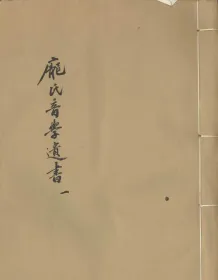 龐氏音學遺書 一